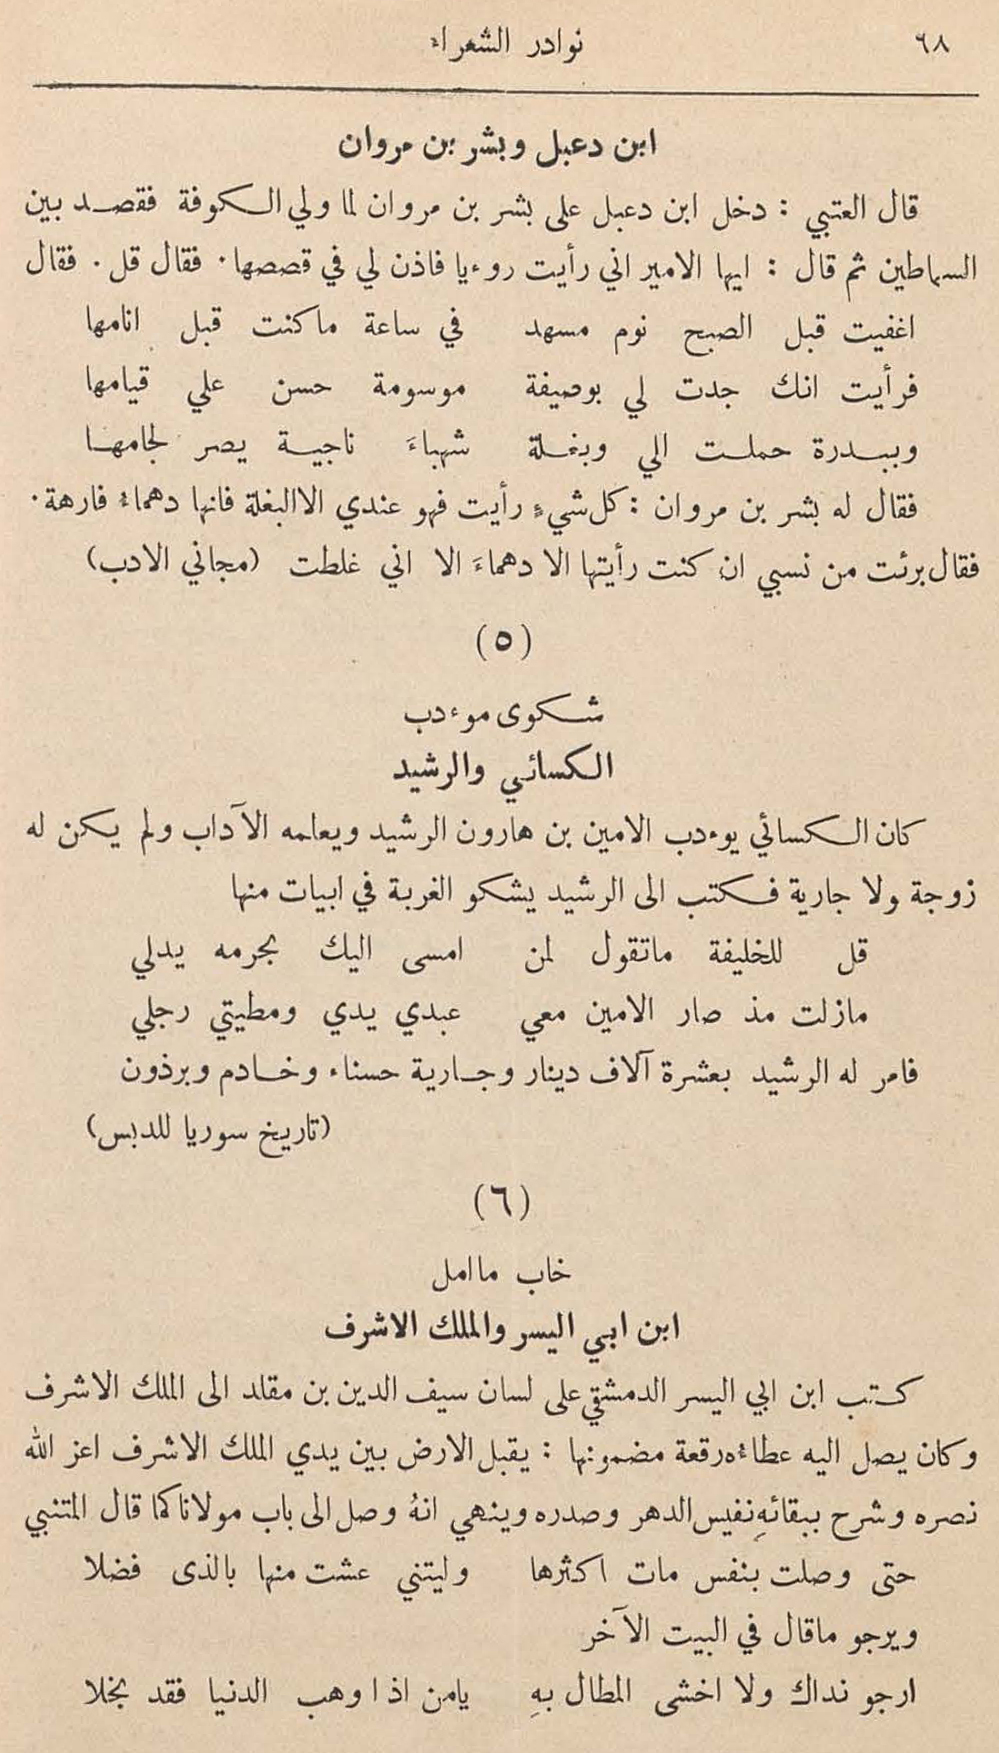 ٦٨ نوادر الشعراء
ابن دعبل وبشر بن مروان
قال العتبي : دخل ابن دعبل على بشر بن مروان لما ولي الكوفة فقصد بين
السماطين ثم قال : ايها الامير اني رأيت روءيا فاذن لي في قصصها . فقال قل . فقال
اغفيت قبل الصبح نوم مسهد في ساعة ماكنت قبل انامها
فرأيت انك جدت لي بوصيفة موسومة حسن علي قيامها
وببدرة حملت الي وبغلة شهباءَ ناجية يصر لجامها
فقال له بشر بن مروان : كل شيءٍ رأيت فهو عندي الا البغلة فانها دهماءُ فارهة .
فقال برئت من نسبي ان كنت رأيتها الا دهماءَ الا اني غلطت (مجاني الادب)
(٥)
شكوى موءدب
الكسائي والرشيد
كان الكسائي يوءدب الامين بن هارون الرشيد ويعلمه الآداب ولم يكن له
زوجة ولا جارية فكتب الى الرشيد يشكو الغربة في ابيات منها
قل للخليفة ماتقول لمن امسى اليك بجرمه يدلي
مازلت مذ صار الامين معي عبدي يدي ومطيتي رجلي
فامر له الرشيد بعشرة آلاف دينار وجارية حسناء وخادم وبرذون
(تاريخ سوريا للدبس)
(٦)
خاب ما امل
ابن ابي اليسر والملك الاشرف
كتب ابن ابي اليسر الدمشقي على لسان سيف الدين بن مقلد الى الملك الاشرف
وكان يصل اليه عطاءه رقعة مضمونها : يقبل الارض بين يدي الملك الاشرف اعز الله
نصره وشرح ببقائهِ نفيس الدهر وصدره وينهي انهُ وصل الى باب مولانا كما قال المتنبي
حتى وصلت بنفس مات اكثرها وليتني عشت منها بالذى فضلا
ويرجو ماقال في البيت الآخر
ارجو نداك ولا اخشى المطال بهِ يامن اذا وهب الدنيا فقد بخلا